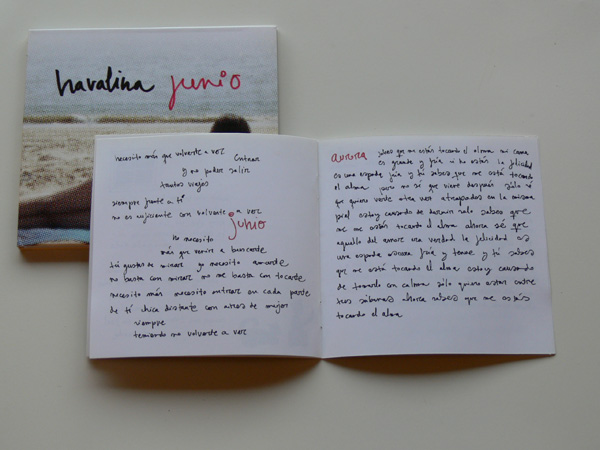 havalina junio
necesito más que volverte a ver
entrar
y no poder salir
tantos viajes
siempre junto a ti
no es suficiente con volverte a ver
junio
no necesito
más que venir a buscarte
tú gustas de mirar yo necesito amarte
no basta con mirar no me basta con tocarte
necesito más necesito entrar en cada parte
de ti chica distante con aires de mujer
siempre
temiendo no volverte a ver
aurora sabes que me estás tocando el alma mi cama
es grande y fría si no estás la felicidad
es una espada fría y tú sabes que me está tocando
el alma pero no sé que viene después sólo sé
que quiero verte otra vez atrapados en la misma
piel estoy cansado de dormir solo sabes que
me estás tocando el alma ahora sé que
aquello del amor era verdad la felicidad es
una espada fría y tenue y tú sabes
que me está tocando el alma estoy cansado
de tomarlo con calma sólo quiero estar entre
tus sábanas ahora sabes que me estás
tocando el alma